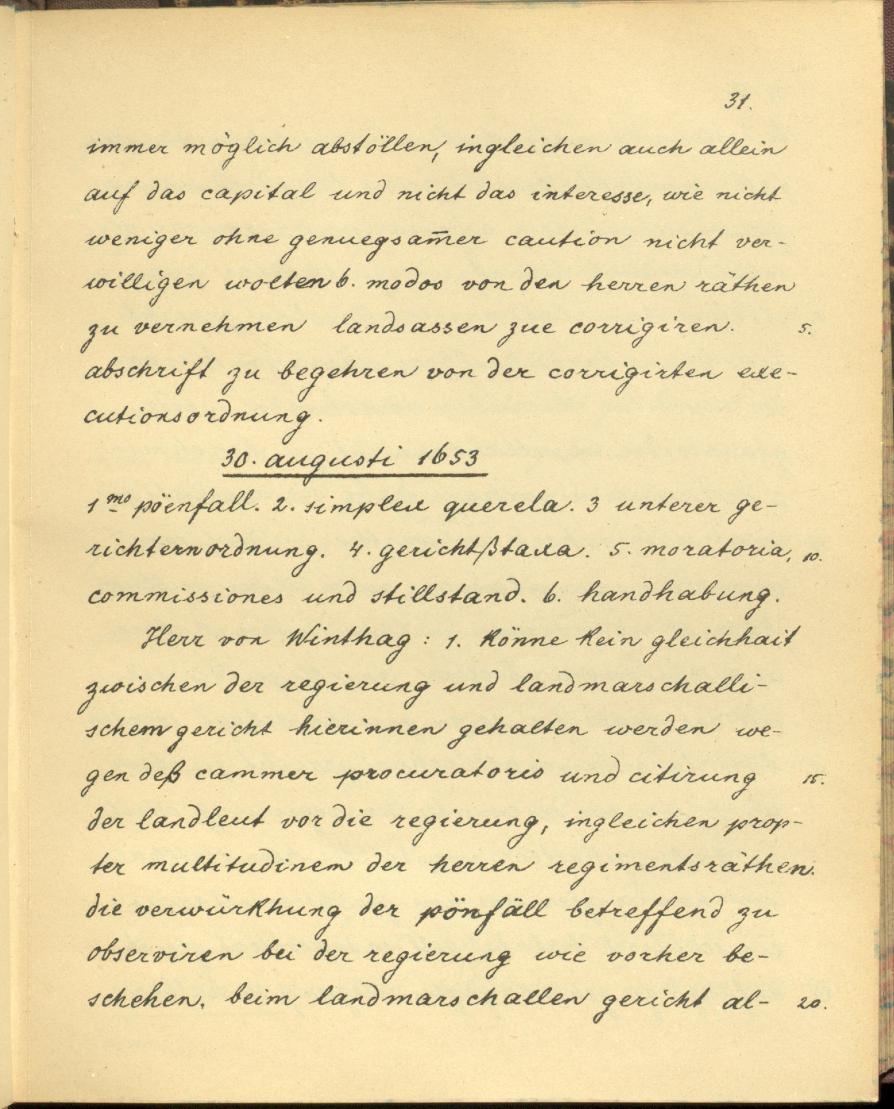 31.
immer möglich abstöllen, ingleichen auch allein
auf das capital und nicht das interesse, wie nicht
weniger ohne genuegsam̄er caution nicht ver-
willigen wolten 6. modos von den herren räthen
zu vernehmen landsassen zue corrigiren. 5.
abschrift zu begehren von der corrigirten exe-
cutionsordnung.
30. augusti 1653
1mo pöenfall. 2. simplex querela. 3 unterer ge-
richternordnung. 4. gerichtßtaxa. 5. moratoria, 10.
commissiones und stillstand. 6. handhabung.
Herr von Winthag: 1. könne kein gleichhait
zwischen der regierung und landmarschalli-
schem gericht hierinnen gehalten werden we-
gen deß cammer procuratoris und citirung 15.
der landleut vor die regierung, ingleichen prop-
ter multitudinem der herren regimentsräthen.
die verwürkhung der pönfäll betreffend zu
observiren bei der regierung wie vorher be-
schehen, beim landmarschallen gericht al- 20.